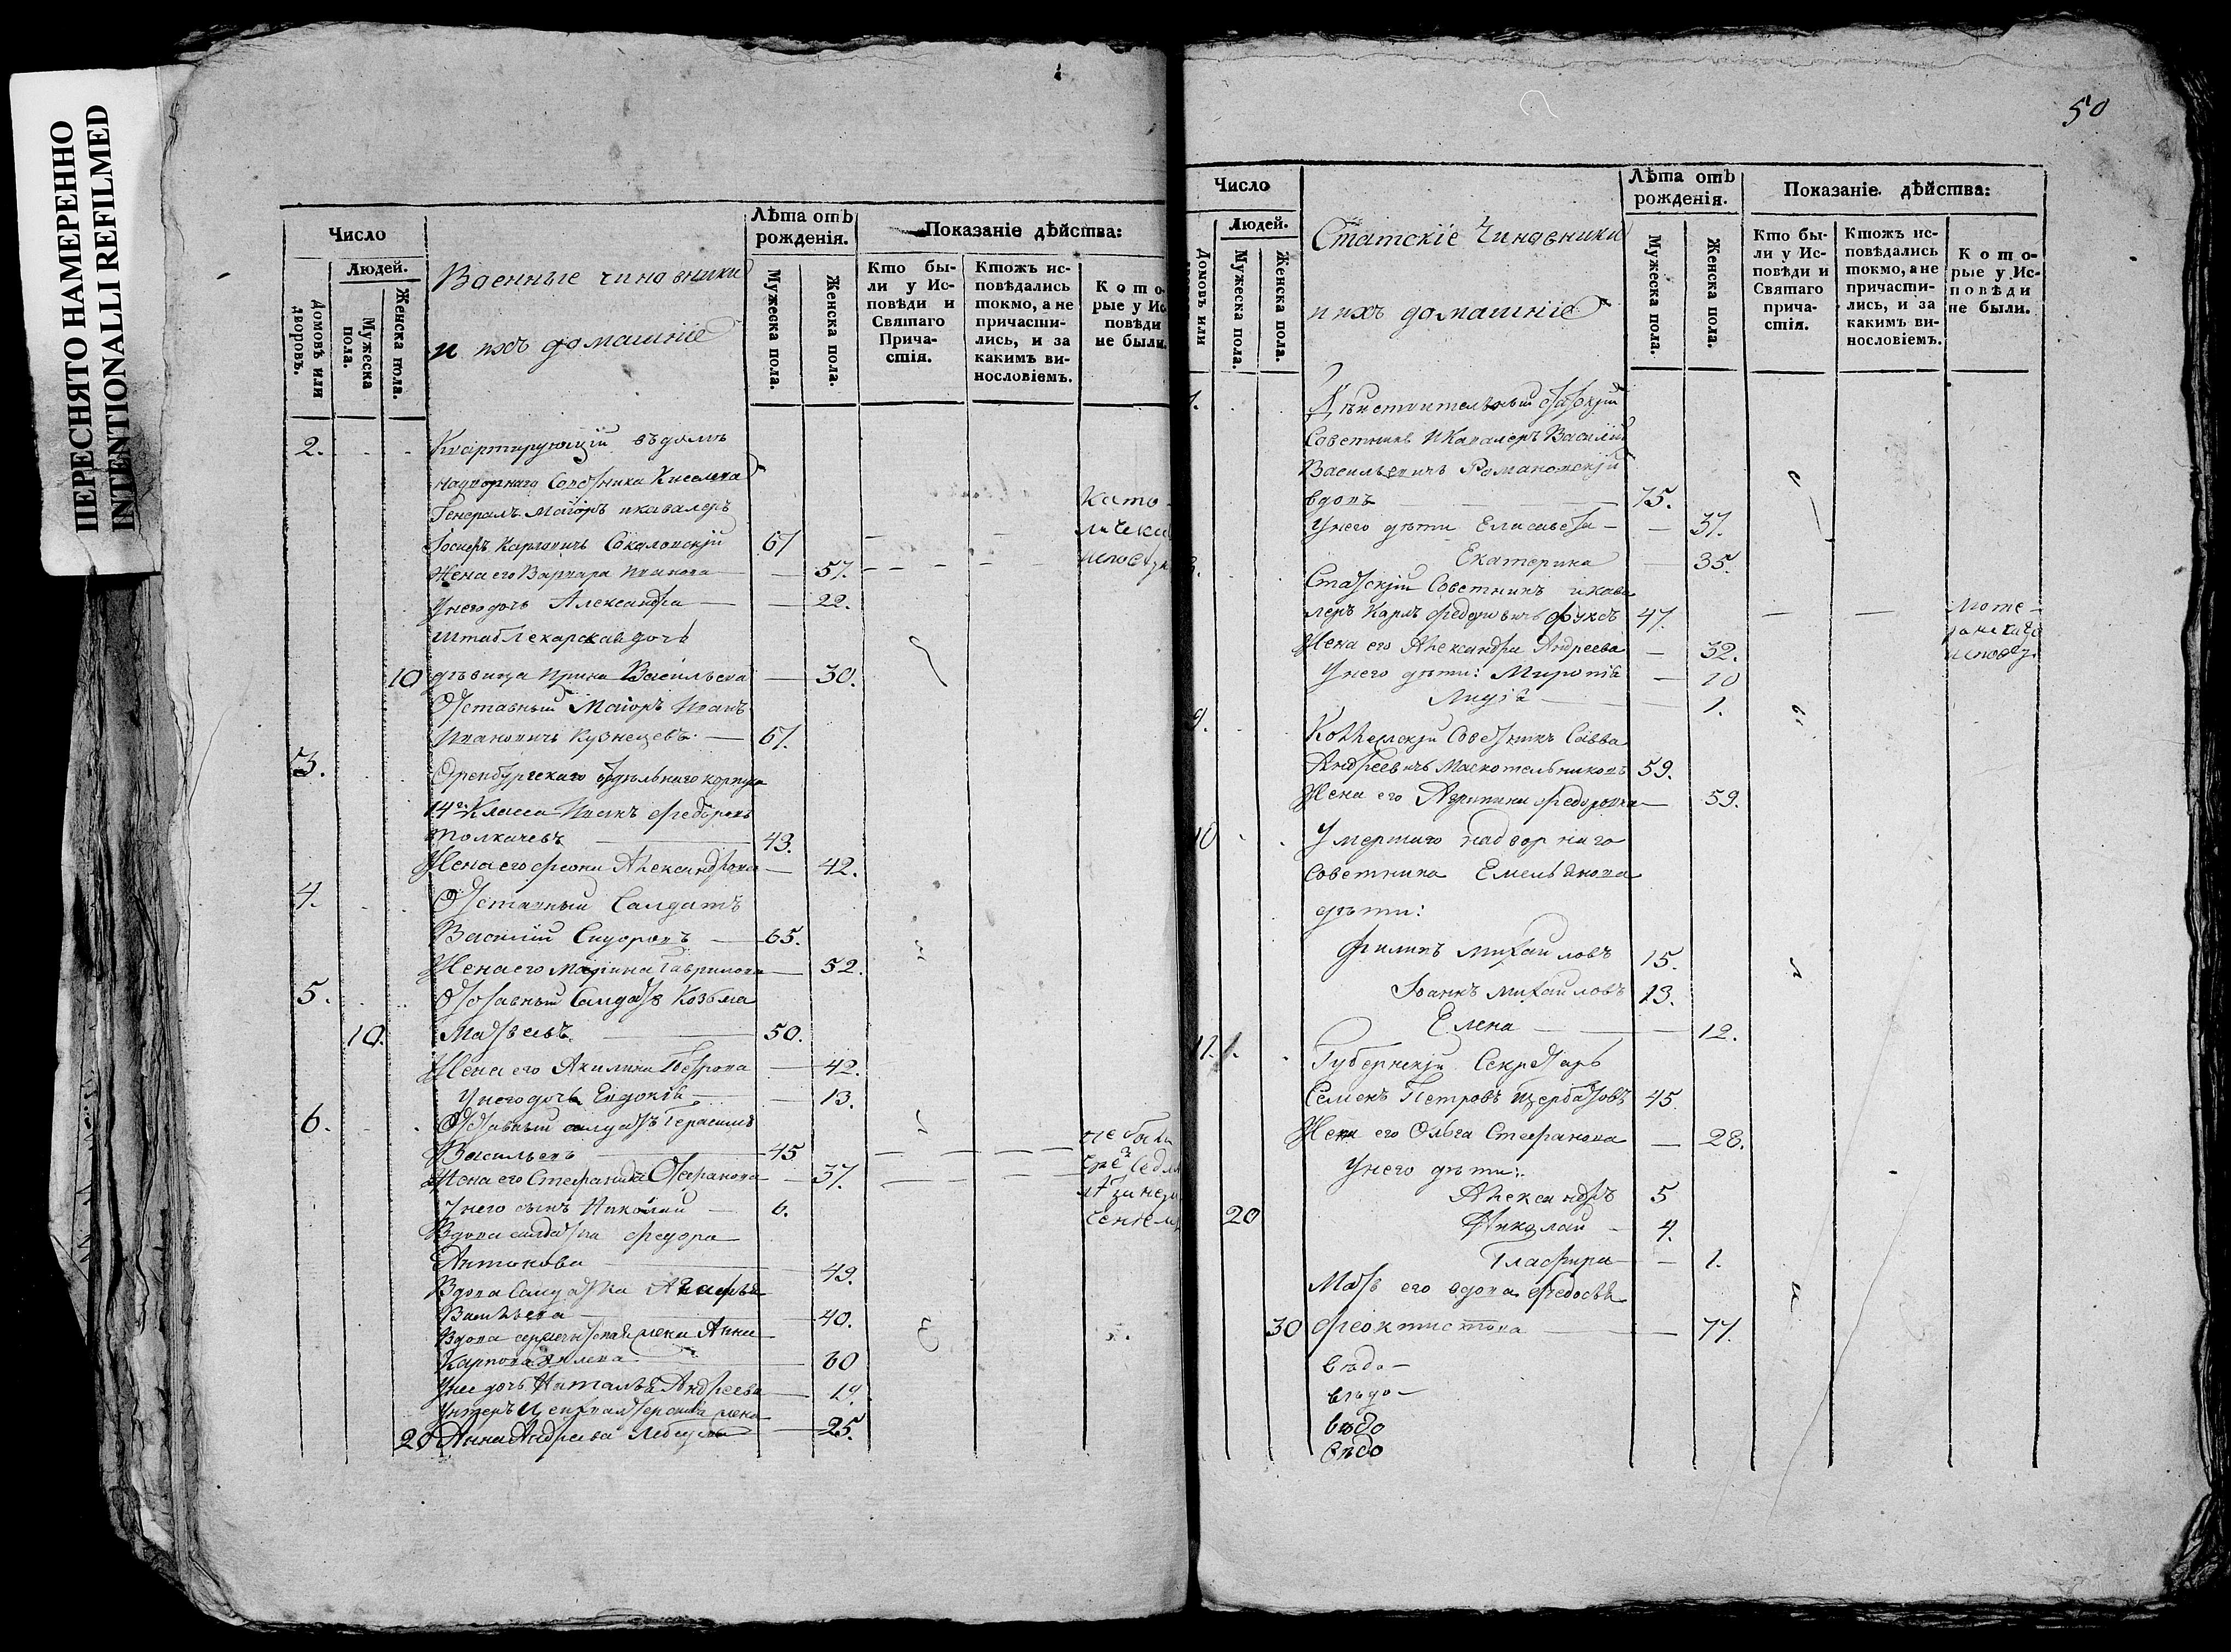 ПЕРЕСНЯТО НАМЕРЕННО
INTENTIONALLI REFILMED
Число
Людей.
Домовъ или дворовъ.
Мужеска пола.
Женска пола.
Военные чиновники
и ихъ домашніе
Лѣта отъ рожденія.
Мужеска пола.
Женска пола.
Показаніе дѣйства:
Кто были у Исповѣди и Святаго Причастія.
Ктожъ исповѣдались токмо, а не причастились, и за какимъ винословіемъ.
Которые у Исповѣди не были.
2. Квартирующій въ домѣ
надворнаго Советника Киселева
Генералъ Маіоръ и кавалеръ
Іосифъ Карловичъ Соколовскій 67
Жена его Варвара Иванова 57.
У него дочь Александра 22.
Штаб Лекарская дочь
10 дѣвица Ирина Васильева 30.
Отставный Маіоръ Иванъ
Ивановичъ Кузнецевъ 67.
3. Оренбургскаго отдѣльнаго корпуса
14го Класса Иванъ Федоровъ
Толкачевъ 43.
Жена его Феона Александрова 42.
4. Отставный Салдатъ
Василій Сидоровъ 65.
Жена его Марина Гаврилова 52.
5. Отставный Салдатъ Козьма
10. Матвеевъ 50.
Жена его Акилина Петрова 42.
У него дочь Евдокія 13.
6. Отставный салдатъ Герасимъ
Васильевъ 45
Жена его Стефанида Стефанова 37.
У него сынъ Николай 6.
Вдова салдатка Федора
Антонова 49.
Вдова Салдатка Агафья
Васильева 40.
Вдова жена Анна
Карпова 60
У нее дочь Наталья Андреева 19.
Унтеръ жена
20 Анна Андреева 25.
Като-
не были
50
Число
Людей.
Домовъ или
Мужеска пола.
Женска пола.
Статскіе Чиновники
и ихъ домашніе
Лѣта отъ рожденія.
Мужеска пола.
Женска пола.
Показаніе дѣйства:
Кто были у Исповѣди и Святаго причастія.
Ктожъ исповѣдались токмо, а не причастились, и за какимъ винословіемъ.
Которые у Исповѣди не были.
Дѣйствительный Статскій
Советникъ и Кавалеръ Василій
Васильевичъ Романовскій
вдовъ 75.
У него дѣти Елисавета 37.
Екатерина 35.
Статскій Советникъ и кава
леръ Карлъ Федоровичъ Фуксъ 47.
Жена его Александра Андреева 32.
У него дѣти: 10
Лидія 1.
9. Коллежскій Советникъ Савва
Андреевичъ Москотельниковъ 59.
Жена его Агрипина Федоровна 59.
10 Умершаго надворнаго
советника Емельянова
дѣти:
Филипъ Михайловъ 15.
Іоаннъ Михайловъ 13.
Елена 12.
11. 1. Губернскій Секретарь
Семенъ Петровъ Щербатовъ 45
Жена его Ольга Стефанова 28.
У него дѣти:
Александръ 5
20 Николай 4.
Глафира 1.
Мать его вдова Федосья
30 Феоктистова 77.
Люте-
ранскаго
исповед.